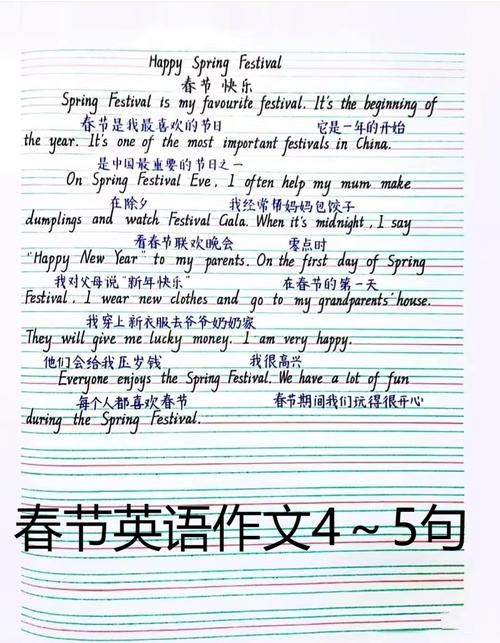 Happy Spring Festival
春节 快乐
Spring Festival is my favourite festival. It's the beginning of
春节是我最喜欢的节日 它是一年的开始
the year. It's one of the most important festivals in China.
是中国最重要的节日之一
On Spring Festival Eve, I often help my mum make
在除夕 我经常帮妈妈包饺子
dumplings and watch Festival Gala. When it's midnight, I say
看春节联欢晚会 零点时
"Happy New Year" to my parents. On the first day of Spring
我对父母说"新年快乐" 在春节的第一天
Festival, I wear new clothes and go to my grandparents' house.
我穿上新衣服去爷爷奶奶家
They will give me lucky money. I am very happy.
他们会给我压岁钱 我很高兴
Everyone enjoys the Spring Festival. We have a lot of fun
每个人都喜欢春节 春节期间我们玩得很开心
during the Spring Festival.
春节英语作文4~5句